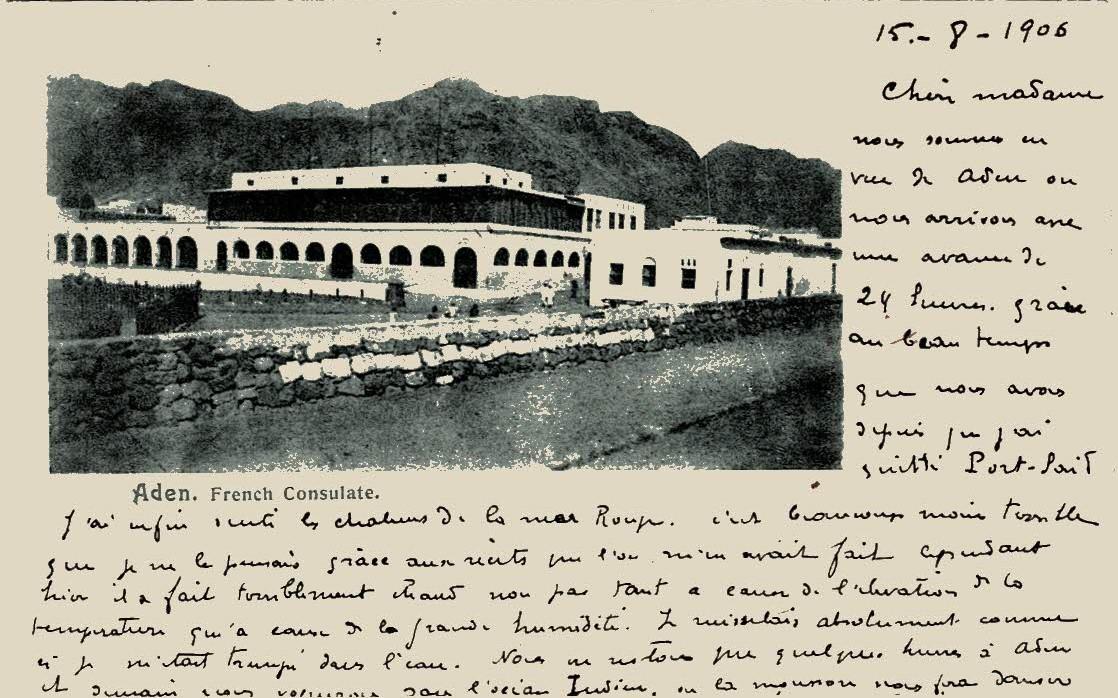 15.- 8 - 1906
Chère madame
nous sommes en
vue de Aden ou
nous arrivons avec
une avance de
24 heures. grâce
au beau temps
que nous avons
depuis que j'ai
quitté Port-Saïd
Aden. French Consulate.
J'ai enfin senti les chaleurs de la mer Rouge. c'est beaucoup moins terrible
que je ne le pensais grâce aux récits que l'on m'en avait fait cependant
hier il a fait terriblement chaud non pas tant a cause de l'élévation de la
température qu'a cause de la grande humidité. Je ruisselais absolument comme
si je m'étais trempé dans l'eau. Nous ne restons que quelques heures à Aden
et demain nous dans l'océan Indien, ou la mousson nous fera danser